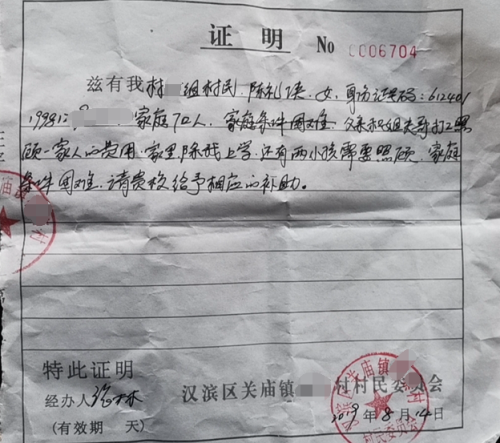 证 明 No 0006704
兹有我村 组村民 陈礼侠 女, 身份证号码: 612401
199812 家庭7口人, 家庭条件困难, 父亲和姐夫哥打工照
顾一家人的费用, 家里除我上学, 还有两小孩需要照顾, 家庭
条件困难, 请贵校给予相应的补助。
庙镇 村
特此证明
经办人
(有效期 天)
汉滨区关庙镇 村村民委员会
2019年8月14日
汉滨区关庙镇 村
村民委员会